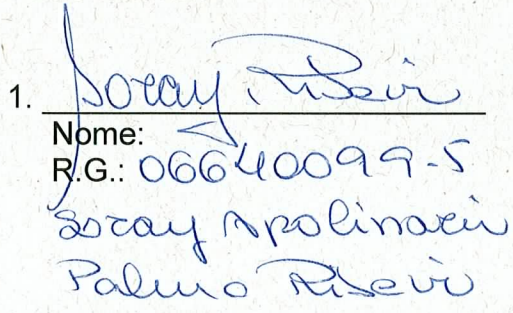 1. Soray Ribeiro
Nome:
R.G.: 06640099-5
Soray Apolinario
Palma Ribeiro